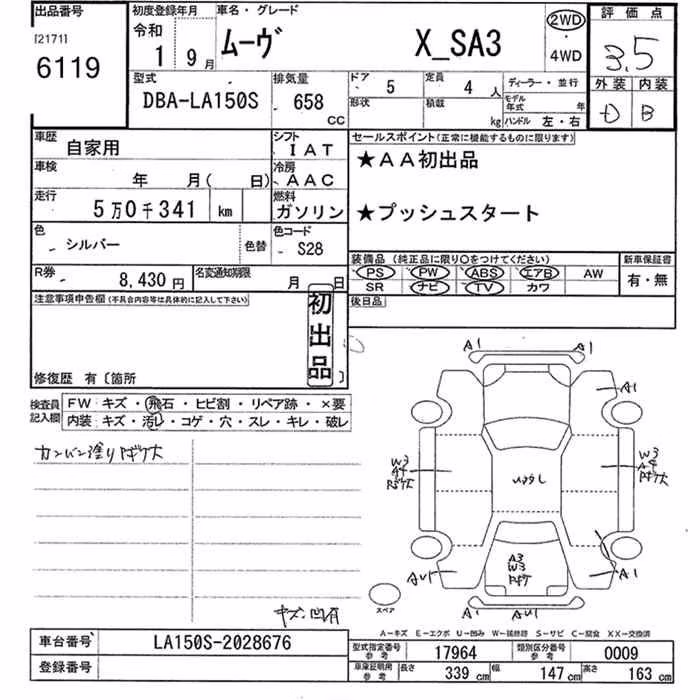 出品番号
[2171]
6119
初度登録年月
令和
1 9月
車名・グレード
ムーヴ X_SA3
2WD
・
4WD
評価点
3.5
外装 内装
D B
型式
DBA-LA150S
排気量
658
cc
ドア 5
定員 4 人
形状
積載 kg
ディーラー・並行
モデル年式 年
ハンドル 左・右
車歴
自家用
シフト
IAT
車検
年 月( 日)
冷房
AAC
走行
5万0千341 km
燃料
ガソリン
色
シルバー
色替
色コード
S28
R券
8,430円
名変通知期限
月 日
セールスポイント(正常に機能するものに限ります)
★AA初出品
★プッシュスタート
装備品 (純正品に限り○をつけてください)
PS PW ABS エアB AW
SR ナビ TV カワ
新車保証書
有・無
後日品
注意事項申告欄(不具合内容等は具体的に記入して下さい)
初出品
修復歴 有〔箇所 〕
検査員記入欄
FW キズ・飛石・ヒビ割・リペア跡・×要
内装・キズ・汚レ・コゲ・穴・スレ・キレ・破レ
カンバン塗り
キズ、凹有
A1 A1
A1
W3
W3
A1
A1
AU1
A3
W3
スペア
A1 AU1
A-キズ E-エクボ U-凹み W-補修跡 S-サビ C-腐食 XX-交換済
車台番号
LA150S-2028676
登録番号
型式指定番号参考
17964
類別区分番号参考
0009
車庫証明用参考
長さ 339 cm
幅 147 cm
高さ 163 cm